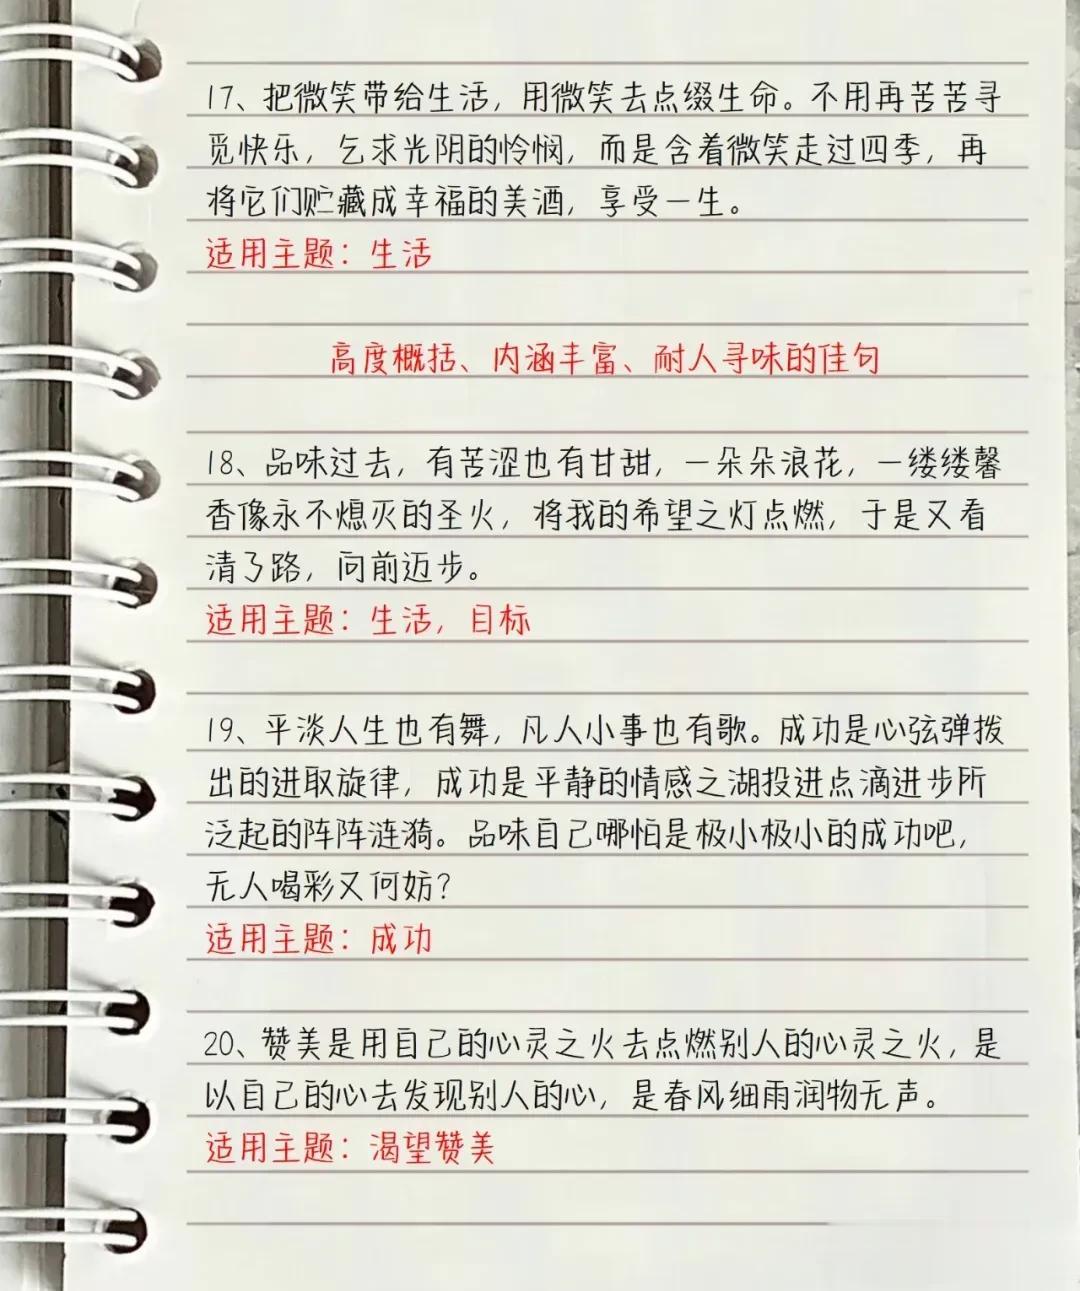 17、把微笑带给生活，用微笑去点缀生命。不用再苦苦寻
觅快乐，乞求光阴的怜悯，而是含着微笑走过四季，再
将它们贮藏成幸福的美酒，享受一生。
适用主题：生活
高度概括、内涵丰富、耐人寻味的佳句
18、品味过去，有苦涩也有甘甜，一朵朵浪花，一缕缕馨
香像永不熄灭的圣火，将我的希望之灯点燃，于是又看
清了路，向前迈步。
适用主题：生活，目标
19、平淡人生也有舞，凡人小事也有歌。成功是心弦弹拨
出的进取旋律，成功是平静的情感之湖投进点滴进步所
泛起的阵阵涟漪。品味自己哪怕是极小极小的成功吧，
无人喝彩又何妨？
适用主题：成功
20、赞美是用自己的心灵之火去点燃别人的心灵之火，是
以自己的心去发现别人的心，是春风细雨润物无声。
适用主题：渴望赞美